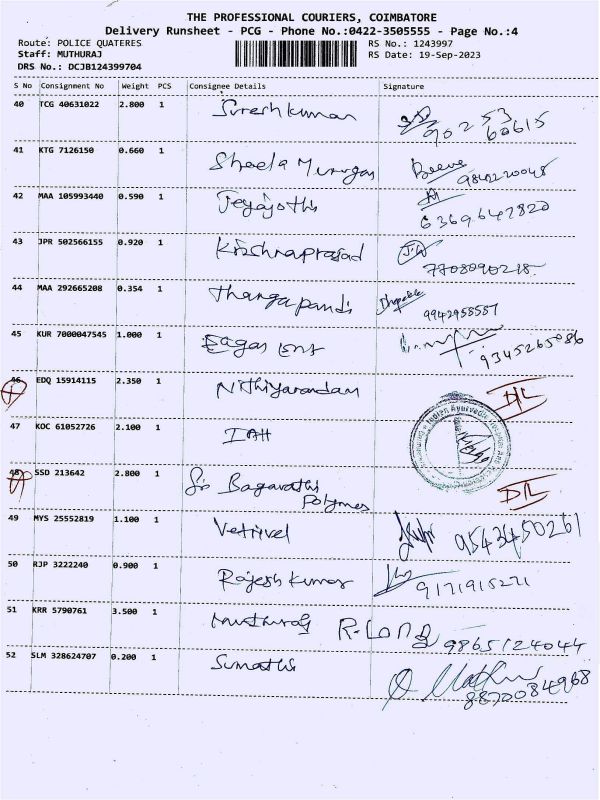 THE PROFESSIONAL COURIERS, COIMBATORE
Delivery Runsheet - PCG - Phone No.:0422-3505555 - Page No.:4
Route: POLICE QUATERES RS No.: 1243997
Staff: MUTHURAJ RS Date: 19-Sep-2023
DRS No.: DCJB124399704
S No Consignment No Weight PCS Consignee Details Signature
40 TCG 40631022 2.800 1 Sureshkumar 90253 60615
41 KTG 7126150 0.660 1 Sheela Murugas
42 MAA 105993440 0.590 1 Jeyajothi 6369647820
43 JPR 502566155 0.920 1 Krishnaprasad 7708090218
44 MAA 292665208 0.354 1 Thangapandi 9942958557
45 KUR 7000047545 1.000 1 9345265086
46 EDQ 15914115 2.350 1 Nithiyanandam D/L
47 KOC 61052726 2.100 1 IAH Indian Ayurvedic
48 SSD 213642 2.800 1 Sri Bagavathi Polymes D/L
49 MYS 25552819 1.100 1 Vetrivel 9543450261
50 RJP 3222240 0.900 1 Rajesh Kumar 9171915271
51 KRR 5790761 3.500 1 Muthuraj 9865124044
52 SLM 328624707 0.200 1 Sumathi 8870084968